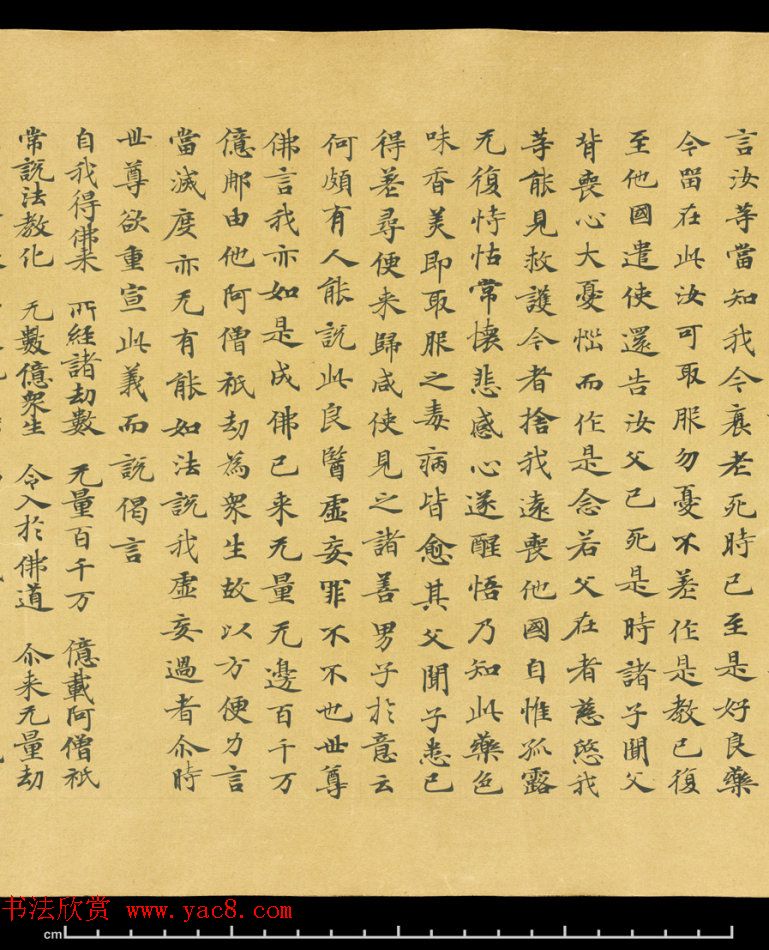 言汝等當知我今衰老死時已至是好良藥
今留在此汝可取服勿憂不差作是教已復
至他國遣使還告汝父已死是時諸子聞父
背喪心大憂惱而作是念若父在者慈愍我
等能見救護今者捨我遠喪他國自惟孤露
无復恃怙常懷悲感心遂醒悟乃知此藥色
味香美即取服之毒病皆愈其父聞子悉已
得差尋便来歸咸使見之諸善男子於意云
何頗有人能説此良醫虛妄罪不不也世尊
佛言我亦如是成佛已来无量无邊百千万
億那由他阿僧祇劫為衆生故以方便力言
當滅度亦无有能如法説我虛妄過者尒時
世尊欲重宣此義而説偈言
自我得佛来 所經諸劫數 无量百千万 億載阿僧祇
常説法教化 无數億衆生 令入於佛道 尒来无量劫
书法欣赏 www.yac8.com
cm